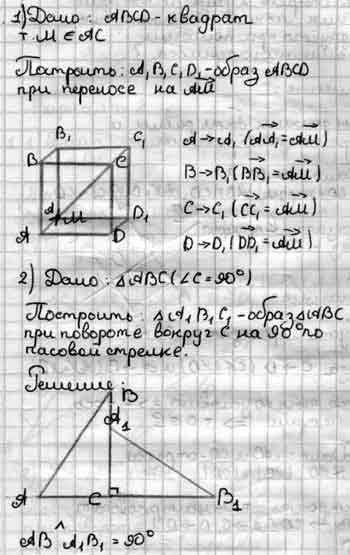 1) Дано: ABCD - квадрат
т. M ∈ AC
Построить: A₁B₁C₁D₁ - образ ABCD
при переносе на AM⃗
B₁ C₁
B C
A₁ M D₁
A D
A → A₁ (AA₁⃗ = AM⃗)
B → B₁ (BB₁⃗ = AM⃗)
C → C₁ (CC₁⃗ = AM⃗)
D → D₁ (DD₁⃗ = AM⃗)
2) Дано: △ABC (∠C = 90°)
Построить: △A₁B₁C₁ - образ △ABC
при повороте вокруг C на 90° по
часовой стрелке.
Решение:
B
A₁
A C B₁
AB ^ A₁B₁ = 90°